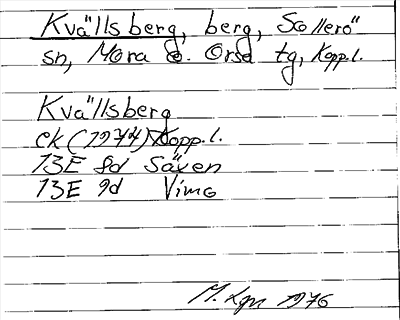 Kvällsberg, berg, Sollerö
sn, Mora o. Orsa tg, Kopp.l.
Kvällsberg
ek (1974) Kopp.l.
13E 8d Säven
13E 9d Vimo
M. Kgn 1976